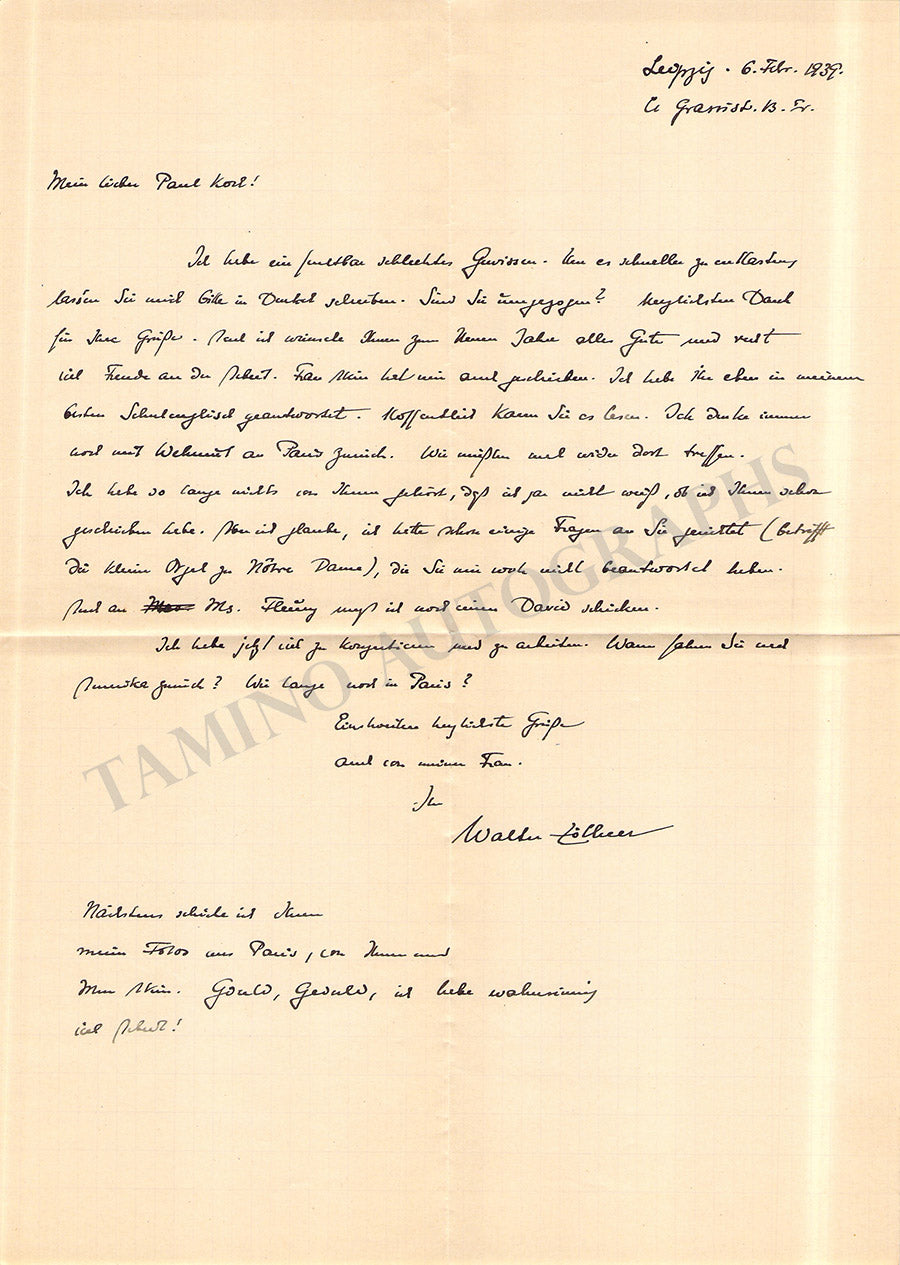 Leipzig. 6. Febr. 1939.
13.
Mein lieber Paul Koch!
Ich habe ein furchtbar schlechtes Gewissen. Um es schneller zu entlasten,
lassen Sie mich bitte in Deutsch schreiben. Sind Sie umgezogen? Herzlichsten Dank
für Ihre Grüße. Auch ich wünsche Ihnen zum Neuen Jahre alles Gute und recht
viel Freude an der Arbeit. Frau hat mir auch geschrieben. Ich habe ihr eben in meinem
besten Schulenglisch geantwortet. Hoffentlich kann sie es lesen. Ich denke immer
noch mit Wehmut an Paris zurück. Wir müßten mal wieder dort treffen.
Ich habe so lange nichts von Ihnen gehört, daß ich gar nicht weiß, ob ich Ihnen schon
geschrieben habe. Aber ich glaube, ich hatte schon einige Fragen an Sie gerichtet (betrifft
die kleine Orgel zu Nôtre Dame), die Sie mir noch nicht beantwortet haben.
Auch an Ms. Fleury muß ich noch einen David schicken.
Ich habe jetzt viel zu konzertieren und zu arbeiten. Wann fahren Sie nach
Amerika zurück? Wie lange noch in Paris?
Einstweilen herzlichste Grüße
auch von meiner Frau.
Ihr
Walter Zöllner
Nächstens schicke ich Ihnen
meine Fotos aus Paris, von Ihnen und
Geduld, Geduld, ich habe wahnsinnig
viel Arbeit!
TAMINO AUTOGRAPHS